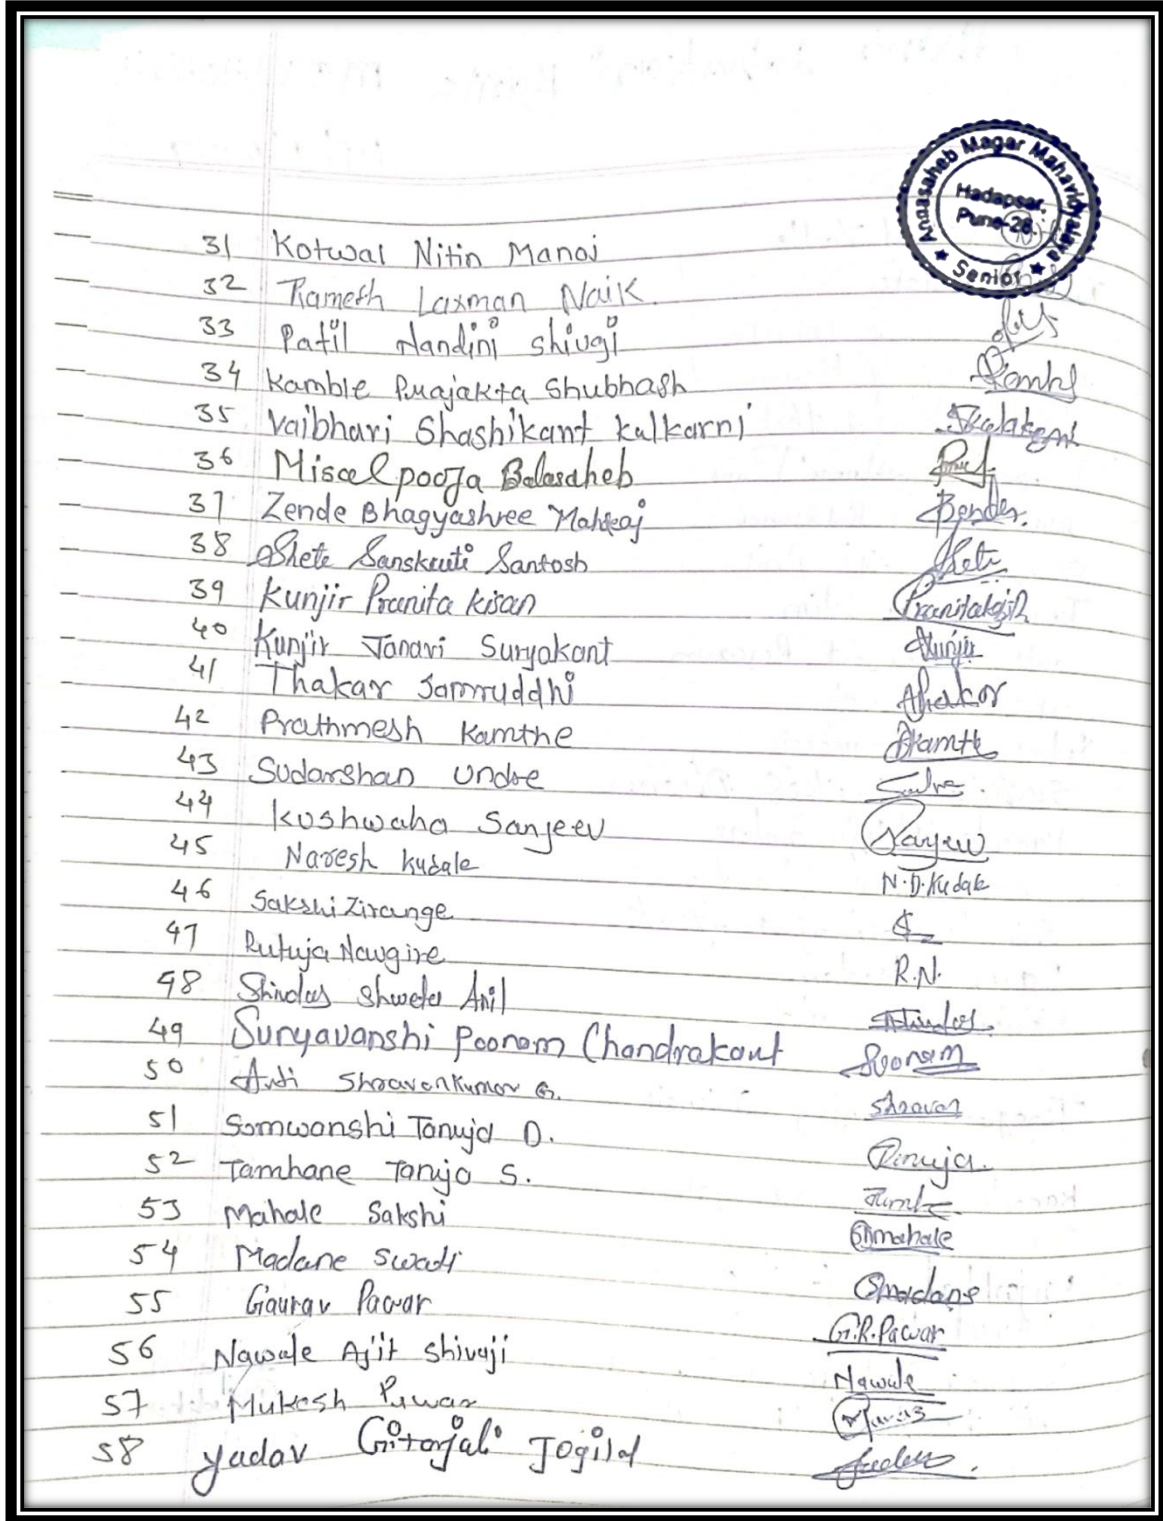 Annasaheb Magar Mahavidyalaya
Hadapsar,
Pune-28.
Senior
31 Kotwal Nitin Manoj
32 Ramesh Laxman Naik.
33 Patil Nandini shivaji
34 Kamble Prajakta Shubhash Kamble
35 Vaibhavi Shashikant kulkarni Skulkarni
36 Misal pooja Balasaheb
37 Zende Bhagyashree
38 Shete Sanskruti Santosh Shete
39 Kunjir Pranita kisan
40 Kunjir Tanavi Suryakant Kunjir
41 Thakar Samruddhi Thakar
42 Prathmesh Kamthe Kamthe
43 Sudarshan Undre
44 Kushwaha Sanjeev Sanjeev
45 Naresh Kudale N.D.Kudale
46 Sakshi Zirange
47 Rutuja Nawgire R.N.
48 Shindas Shweta Anil
49 Suryavanshi Poonam Chandrakant Poonam
50 Shravankumar G. Shravan
51 Somwanshi Tanuja D. Tanuja.
52 Tamhane Tanuja S.
53 Mahale Sakshi Smahale
54 Madane Swati Smadane
55 Gaurav Pawar G.R.Pawar
56 Nawale Ajit Shivaji Nawale
57 Mukesh Pawar
58 Yadav Gitanjali Jogilal